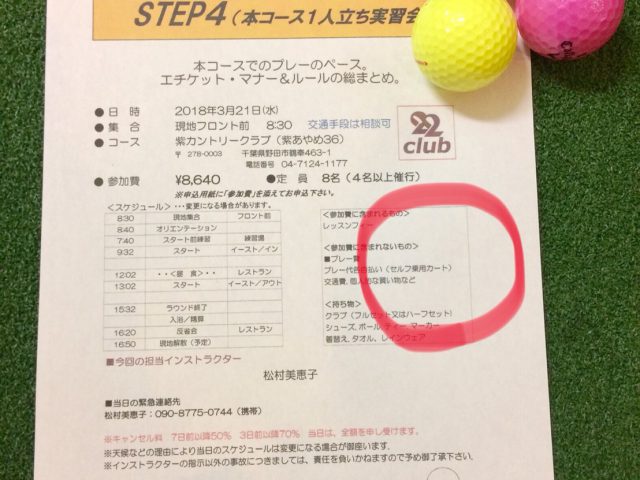 STEP4(本コース1人立ち実習会
本コースでのプレーのペース。
エチケット・マナー&ルールの総まとめ。
●日 時 2018年3月21日(水)
●集 合 現地フロント前 8:30 交通手段は相談可
●コース 紫カントリークラブ(紫あやめ36)
〒 278-0003 千葉県野田市鶴奉463-1
電話番号 04-7124-1177
22 club
●参加費 ¥8,640 ●定 員 8名(4名以上催行)
※申込用紙に「参加費」を添えてお申込下さい。
<スケジュール>・・・変更になる場合があります。
8:30 現地集合 フロント前
8:40 オリエンテーション
7:40 スタート前練習 練習場
9:32 スタート イースト/イン
12:02 ・・<昼 食>・・ レストラン
13:02 スタート イースト/アウト
15:32 ラウンド終了
入浴/精算
16:20 反省会 レストラン
16:50 現地解散(予定)
<参加費に含まれるもの>
レッスンフィー
<参加費に含まれないもの>
■プレー費
プレー代各自払い(セルフ乗用カート)
交通費、個人的な買い物など
<持ち物>
クラブ(フルセット又はハーフセット)
シューズ、ボール、ティー、マーカー
着替え、タオル、レインウェア
■今回の担当インストラクター
松村美恵子
■当日の緊急連絡先
松村美恵子:090-8775-0744(携帯)
※キャンセル料 7日前以降50% 3日前以降70% 当日は、全額を申し受けます。
※天候などの理由により当日のスケジュールは変更になる場合が御座います。
※インストラクターの指示以外の事故につきましては、責任を負いかねますので予め御了承下さい。